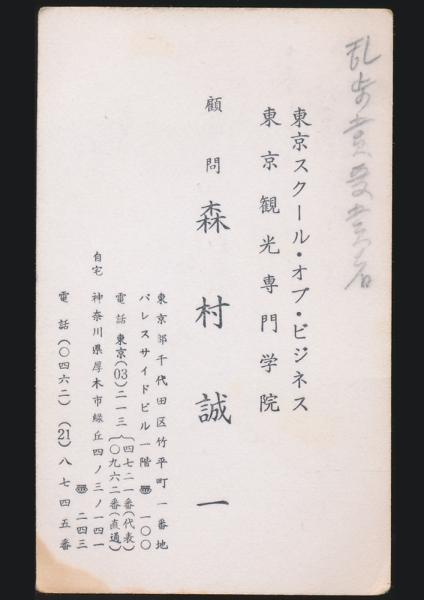 乱歩賞受賞者
東京スクール・オブ・ビジネス
東京観光専門学院
顧問 森村誠一
東京都千代田区竹平町一番地
パレスサイドビル一階 〠 一〇〇
電話 東京(03)二一三{四七二一番(代表)
〇九六二番(直通)
自宅 神奈川県厚木市緑丘四ノ三ノ一四一
〠 二四三
電話(〇四六二)(21)八七四五番